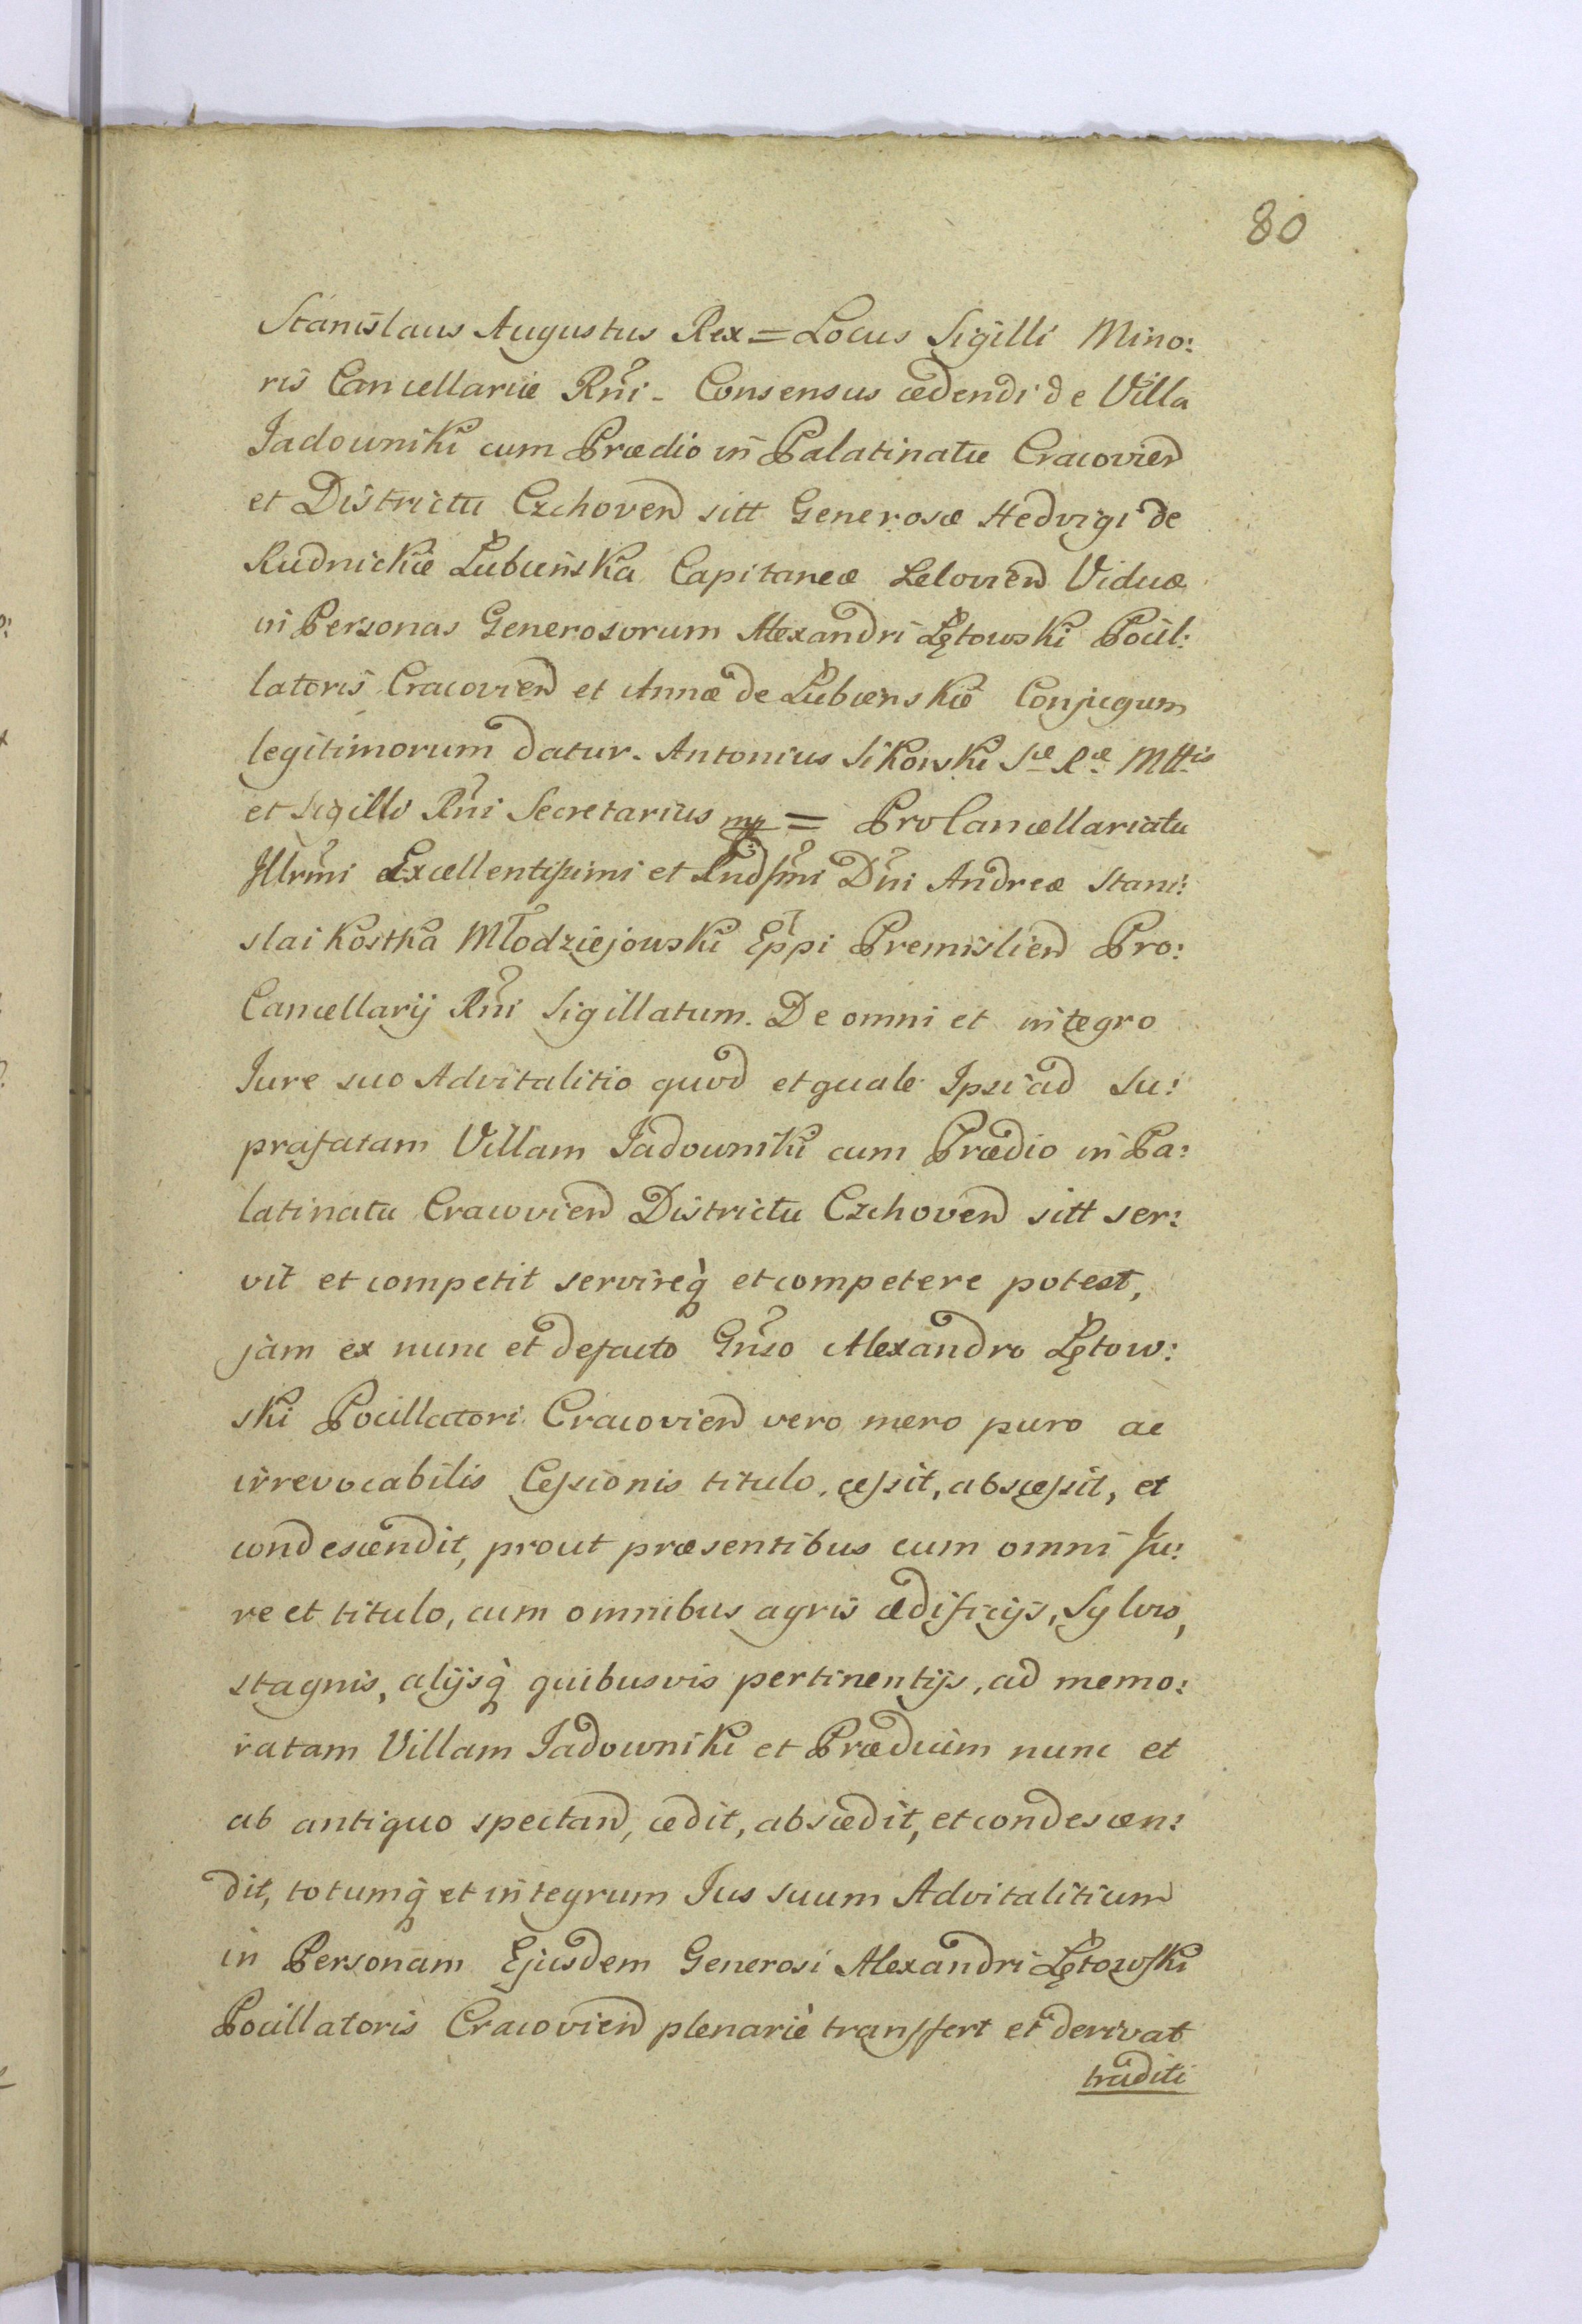 80
Stanislaus Augustus Rex = Locus Sigilli Mino:
ris Cancellariæ Rñi - Consensus cedendi de Villa
Jadowniki cum Prædio in Palatinatu Cracovien
et Districtu Czchoven sitt Generosæ Hedvigi de
Rudnickie Łubieńska Capitaneæ Lelovien Viduæ
in Personas Generosorum Alexandri Łętowski Pocil:
latoris Cracovien et Annæ de Łubienskie Conjugum
legitimorum datur. Antonius Sikorski Sæ Ræ Mttis
et Sigilli Rñi Secretarius mp = ProCancellariatu
Illrmi Excellentissimi et Rndssmi Dñi Andreæ Stani:
slai Kostka Młodziejowski Eppi Premislien Pro:
Cancellarij Rñi Sigillatum. De omni et integro
Jure suo Advitalitio quod et quale Ipsi ad Su:
prafatam Villam Jadowniki cum Prædio in Pa:
latinatu Cracovien Districtu Czchoven sitt ser:
vit et competit servireq̀ et competere potest,
jam ex nunc et defacto Gñso Alexandro Łętow:
ski Pocillatori Cracovien vero mero puro ac
irrevocabilis Cessionis titulo, cessit, abscessit, et
condescendit, prout præsentibus cum omni Ju:
re et titulo, cum omnibus agris ædificijs, Sylvis,
stagnis, alijsq̀ quibusvis pertinentijs, ad memo:
ratam Villam Jadowniki et Prædium nunc et
ab antiquo spectan, cedit, abscedit, et condescen:
dit, totumq̀ et integrum Jus suum Advitalitium
in Personam Ejusdem Generosi Alexandri Łętowski
Pocillatoris Cracovien plenariè transfert et derivat
traditi